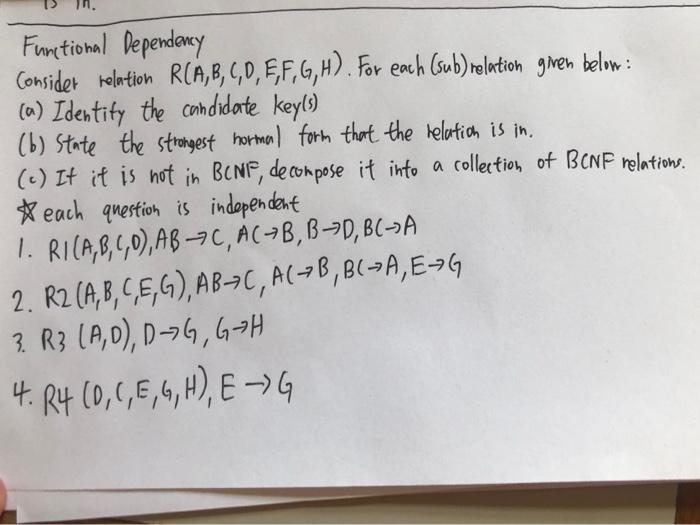 is in.
Functional Dependency
Consider relation R(A,B,C,D,E,F,G,H). For each (sub)relation given below:
(a) Identify the candidate key(s)
(b) State the strongest normal form that the relation is in.
(c) If it is not in BCNF, decompose it into a collection of BCNF relations.
☆ each question is independent
1. R1(A,B,C,D), AB→C, AC→B, B→D, BC→A
2. R2(A,B,C,E,G), AB→C, AC→B, BC→A, E→G
3. R3 (A,D), D→G, G→H
4. R4 (D,C,E,G,H), E→G